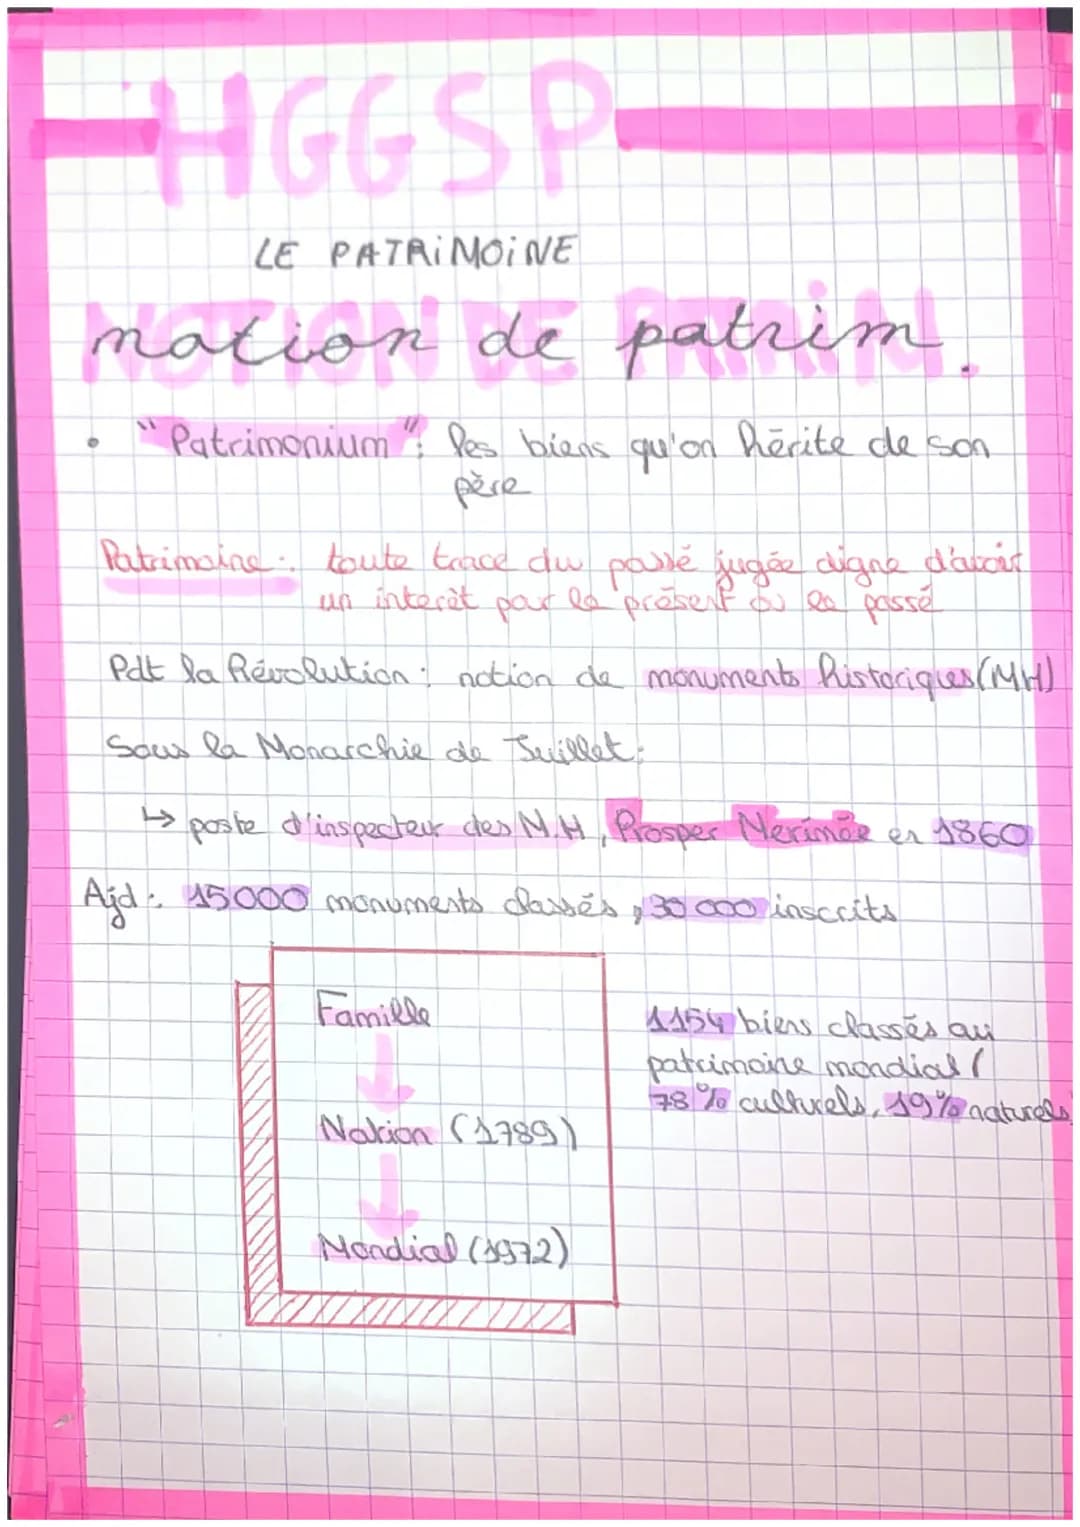 HGGSP
LE PATRIMOINE
NOTION DE PATRIM.
notion de patrim.
• "Patrimonium": les biens qu'on hérite de son
père
Patrimoine : toute trace du passé jugée digne d'avoir
un interêt par le présent ou le passé
Pdt la Révolution : notion de monuments historiques (MH)
Sous la Monarchie de Juillet :
↳ poste d'inspecteur des M.H, Prosper Merimée en 1860
Ajd : 15000 monuments classés, 30 000 inscrits
Famille
Nation (1789)
Mondial (1972)
1154 biens classés au
patrimoine mondial (
78% culturels, 19% naturels